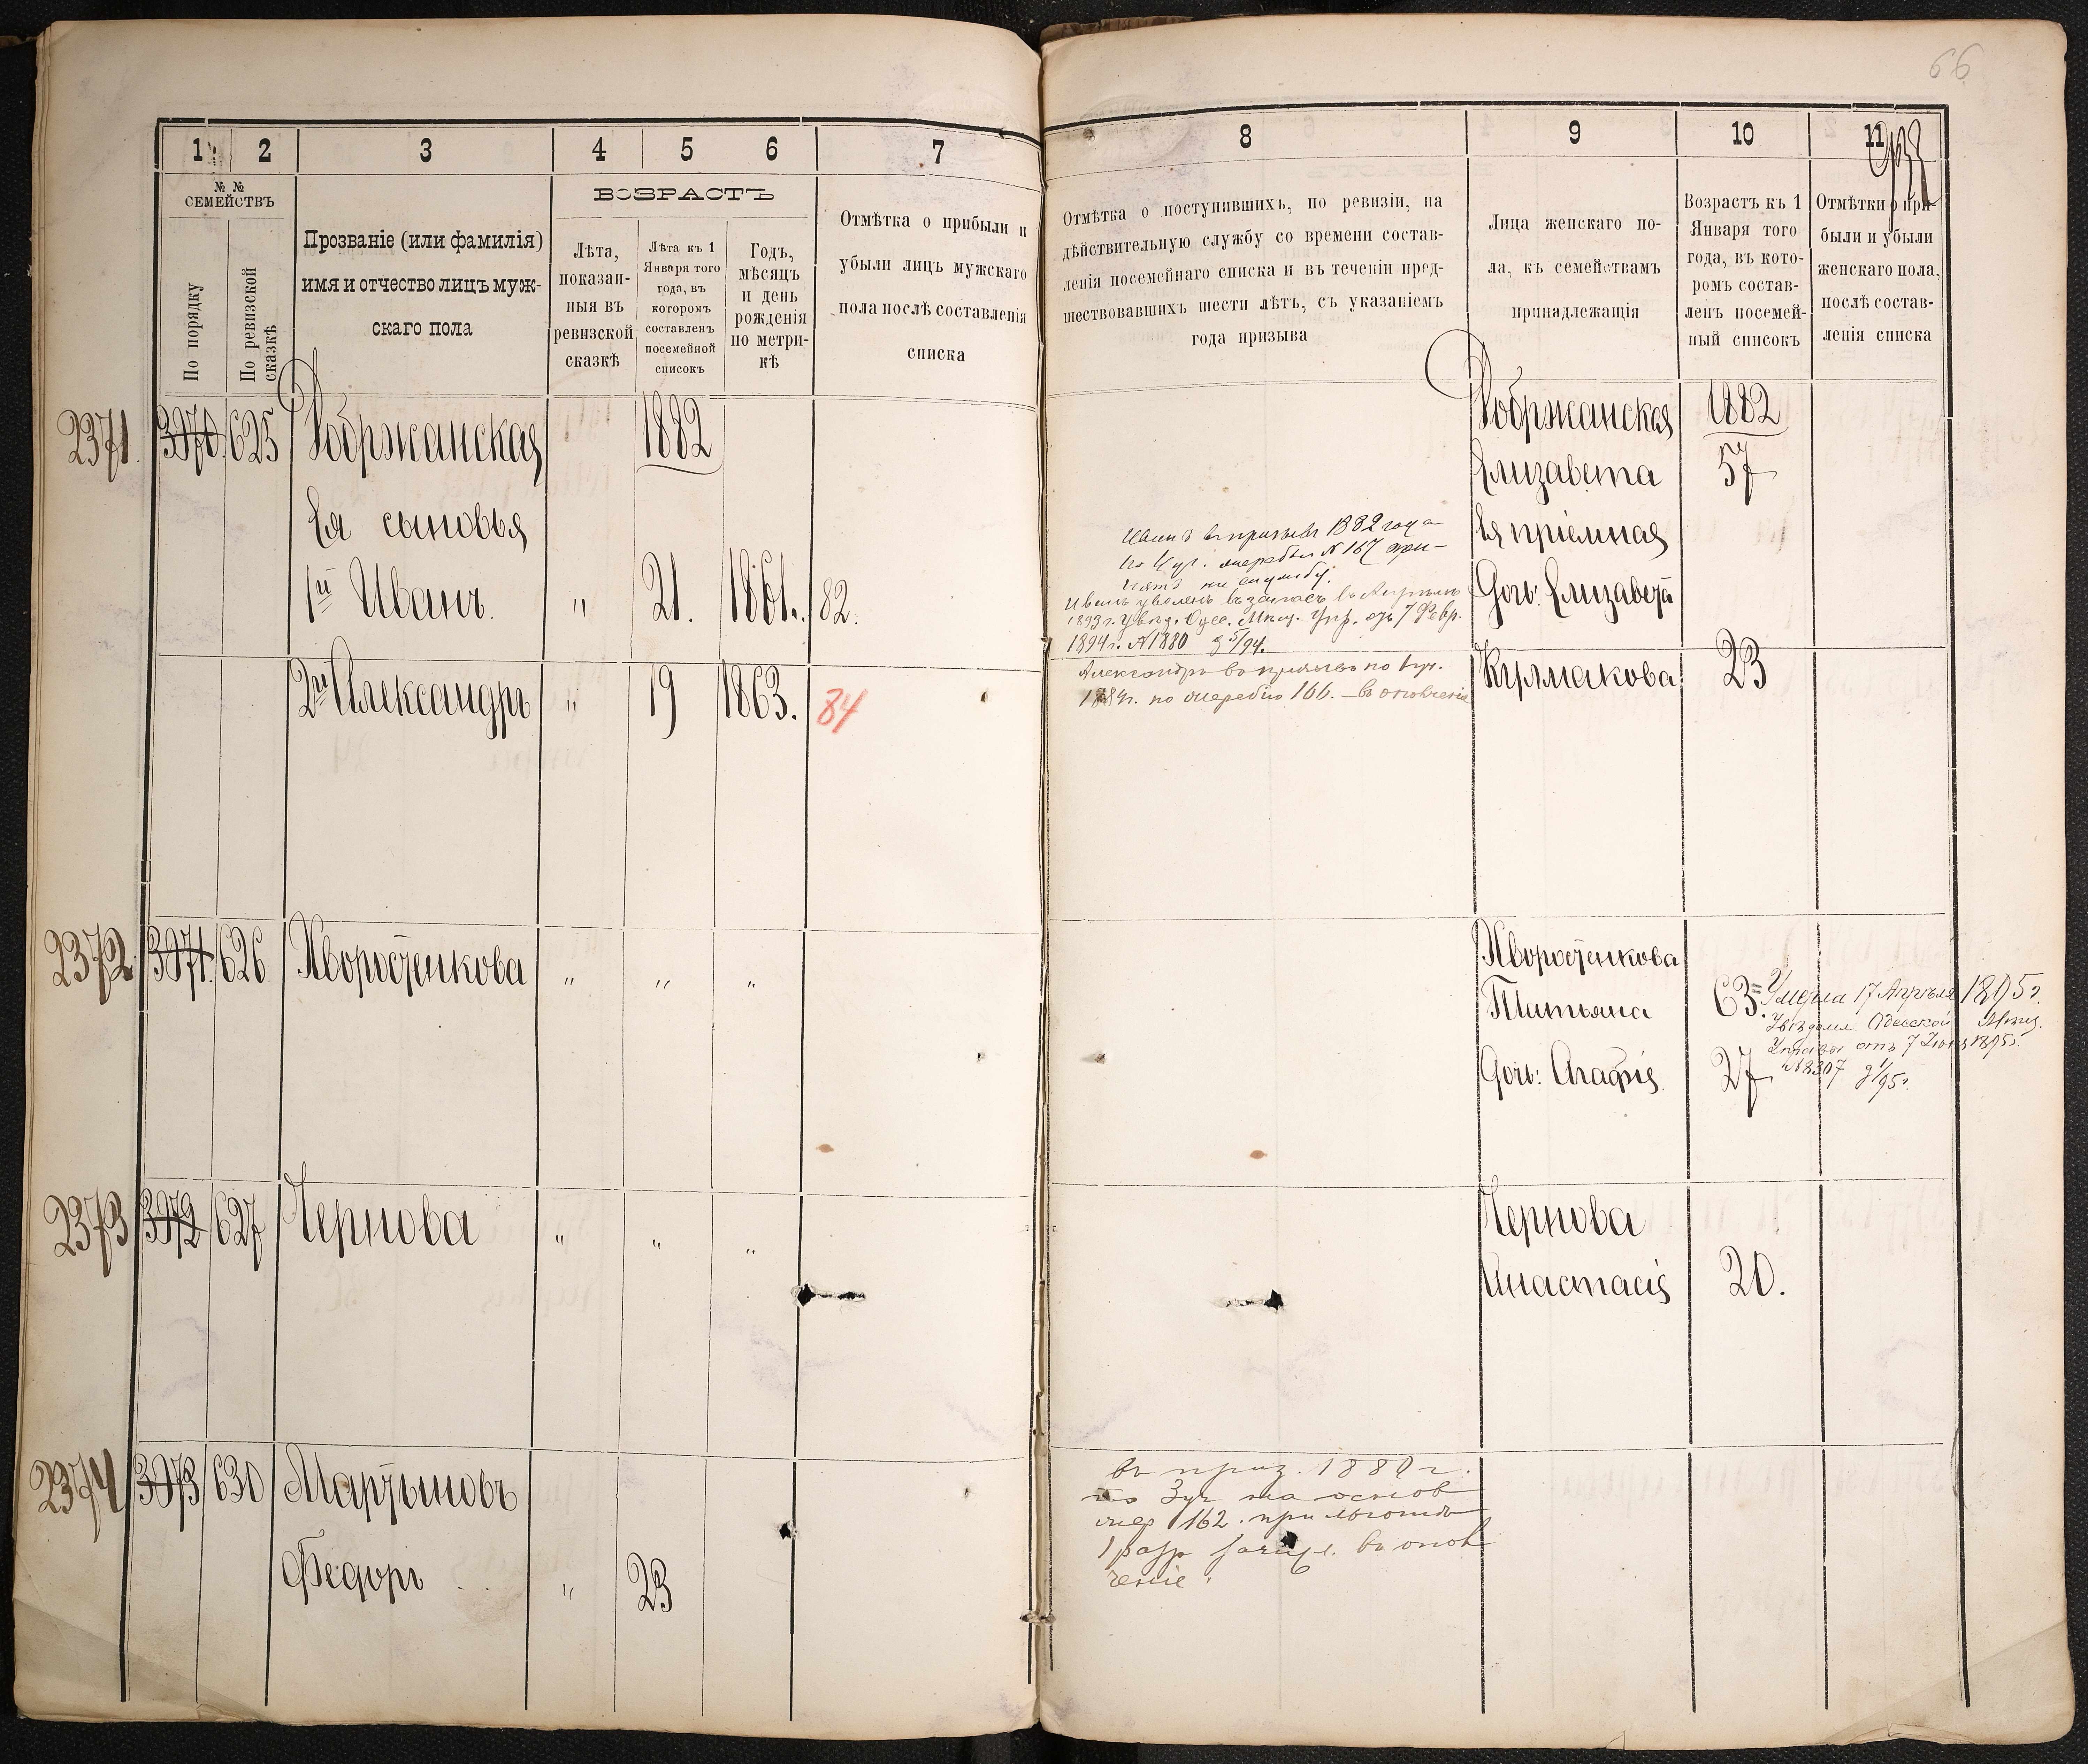 66
1
2
3
4
5
6
7
№ №
СЕМЕЙСТВЪ
По порядку
По ревизской
сказкѣ
Прозваніе (или фамилія)
имя и отчество лицъ муж-
скаго пола
ВОЗРАСТЪ
Лѣта,
показан-
ныя въ
ревизской
сказкѣ
Лѣта къ 1
Января того
года, въ
которомъ
составленъ
посемейной
списокъ
Годъ,
мѣсяцъ
и день
рожденія
по метри-
кѣ
Отмѣтка о прибыли и
убыли лицъ мужскаго
пола послѣ составленія
списка
2371 3970 625 Добржанская 1882
Ея сыновья
1й Иванъ " 21. 1861. 82.
2й Александръ " 19 1863. 84
2372 3971. 626 Хворостенкова " " "
2373 3972 627 Чернова " " "
2374 3973 630 Мартыновъ
Федоръ " 23
8
9
10
11
Отмѣтка о поступившихъ, по ревизіи, на
дѣйствительную службу со времени состав-
ленія посемейнаго списка и въ теченіи пред-
шествовавшихъ шести лѣтъ, съ указаніемъ
года призыва
Лица женскаго по-
ла, къ семействамъ
принадлежащія
Возрастъ къ 1
Января того
года, въ кото-
ромъ состав-
ленъ посемей-
ный списокъ
Отмѣтки о при-
были и убыли
женскаго пола,
послѣ состав-
ленія списка
Иванъ въ призывѣ 1882 года
по уч. жеребью № 167 при-
нятъ на службу.
Иванъ уволенъ въ запасъ въ
1893 г. Увѣд. Одес. Мѣщ. Упр. отъ 7 Февр.
1894 г. № 1880
Александръ въ призывѣ по 1 уч.
1884 г. по жеребію 166. – въ ополченіе
Добржанская 1882
Елизавета 57
Ея пріемная
Дочь: Елизавета
Курмакова 23
Хворостенкова
Татьяна 63. Умерла 17 Апрѣля 1895 г.
Увѣдомл. Одесской Мѣщ.
Управы отъ 7 1895 г.
№ 8307
Дочь: Агафія 27
Чернова
Анастасія 20.
въ приз. 1880 г.
по 3 уч на основ
жер 162. при льготѣ
1 разр зачисл. въ опол
ченіе.